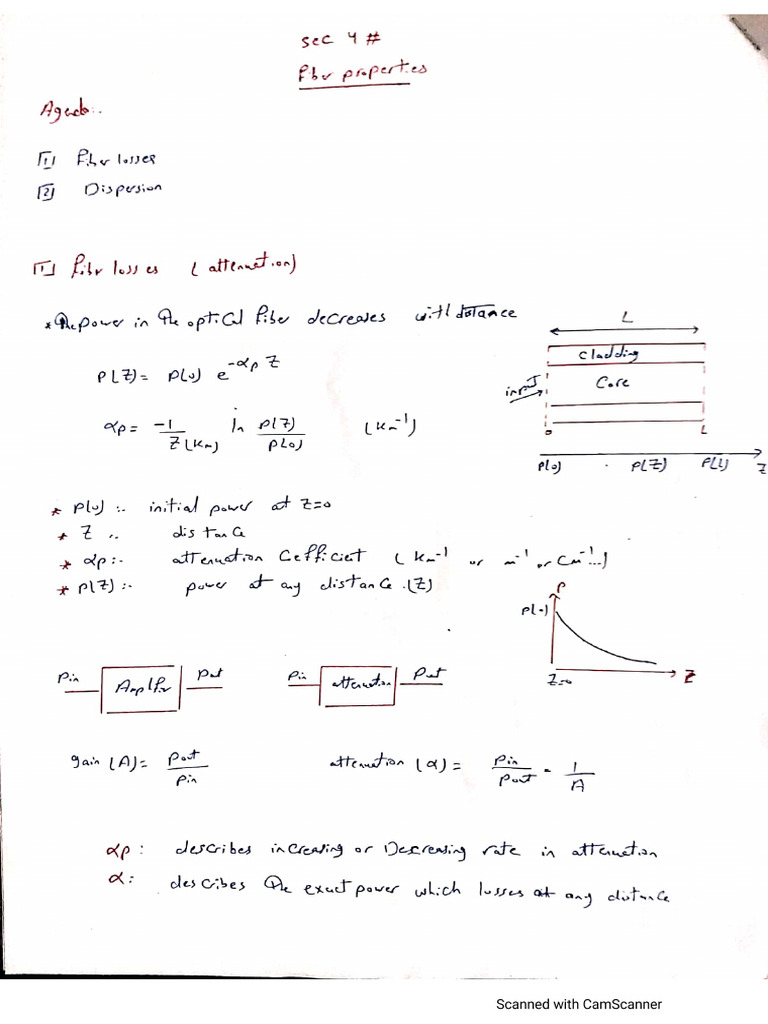 Sec 4 #
Fiber properties
Agenda:.
[1] Fiber losses
[2] Dispersion
[1] Fiber losses (attenuation)
* The power in the optical fiber decreases with distance
P(Z) = P(0) e^-αp Z
αp = -1/Z(Km) ln P(Z)/P(0) (Km^-1)
L
Cladding
Core
input
0 L
P(0) P(Z) P(L) Z
* P(0) :. initial power at Z=0
* Z :. distance
* αp :- attenuation Cefficient (Km^-1 or m^-1 or Cm^-1...)
* P(Z) :- power at any distance (Z)
P
P(0)
Z=0 Z
Pin Amplfier Pout Pin attenuation Pout
gain (A) = Pout/Pin attenuation (α) = Pin/Pout = 1/A
αp : describes increasing or Decreasing rate in attenuation
α : describes the exact power which losses at any distance
Scanned with CamScanner